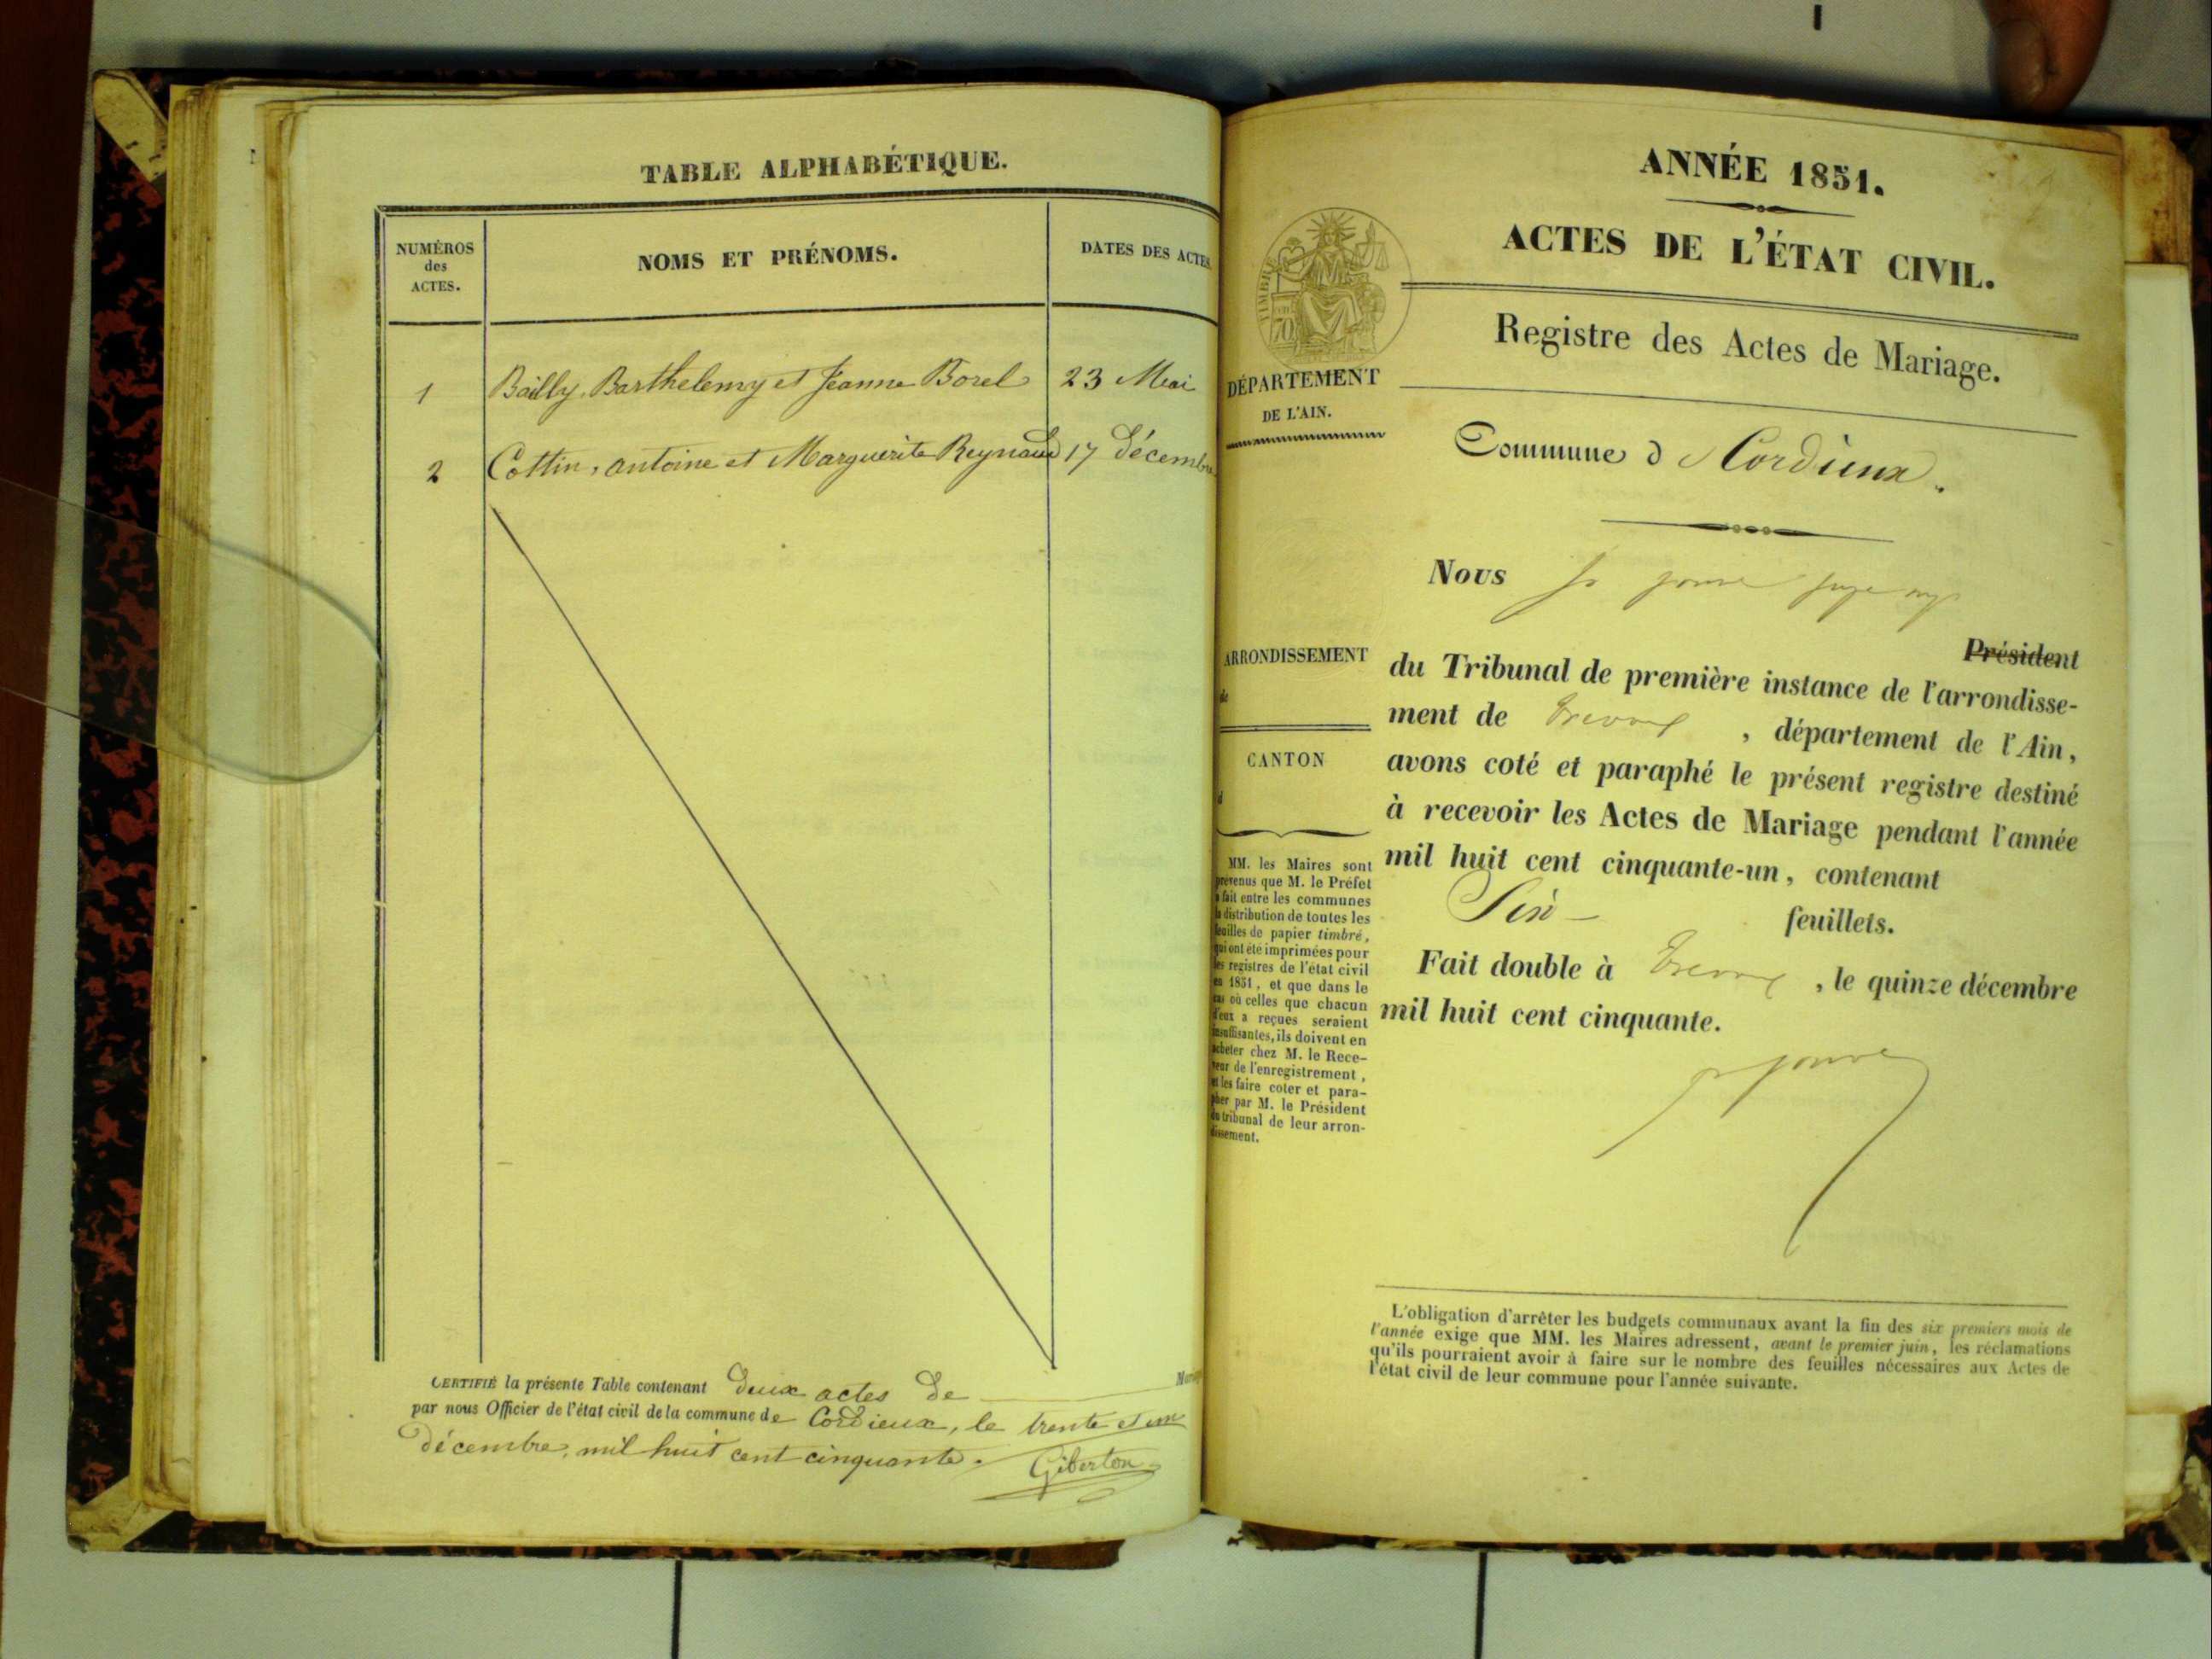 TABLE ALPHABÉTIQUE.
NUMÉROS
des
ACTES.
NOMS ET PRÉNOMS.
DATES DES ACTES.
1 Bailly, Barthelemy et Jeanne Borel 23 Mai
2 Cottin, antoine et Marguerite Reynaud 17 Décembre
CERTIFIÉ la présente Table contenant deux actes de
par nous Officier de l'état civil de la commune de Cordieux, le trente et un
décembre, mil huit cent cinquante.
Giberton
ANNÉE 1851.
ACTES DE L'ÉTAT CIVIL.
Registre des Actes de Mariage.
TIMBRE
70
DÉPARTEMENT
DE L'AIN.
Commune d Cordieux.
Nous
Président
ARRONDISSEMENT
de
du Tribunal de première instance de l'arrondisse-
ment de Trevoux, département de l'Ain,
CANTON
d
avons coté et paraphé le présent registre destiné
à recevoir les Actes de Mariage pendant l'année
mil huit cent cinquante-un, contenant
Six feuillets.
Fait double à Trevoux, le quinze décembre
mil huit cent cinquante.
MM. les Maires sont
prévenus que M. le Préfet
a fait entre les communes
la distribution de toutes les
feuilles de papier timbré,
qui ont été imprimées pour
les registres de l'état civil
en 1851, et que dans le
cas où celles que chacun
d'eux a reçues seraient
insuffisantes, ils doivent en
acheter chez M. le Rece-
veur de l'enregistrement,
et les faire coter et para-
pher par M. le Président
du tribunal de leur arron-
dissement.
L'obligation d'arrêter les budgets communaux avant la fin des six premiers mois de
l'année exige que MM. les Maires adressent, avant le premier juin, les réclamations
qu'ils pourraient avoir à faire sur le nombre des feuilles nécessaires aux Actes de
l'état civil de leur commune pour l'année suivante.